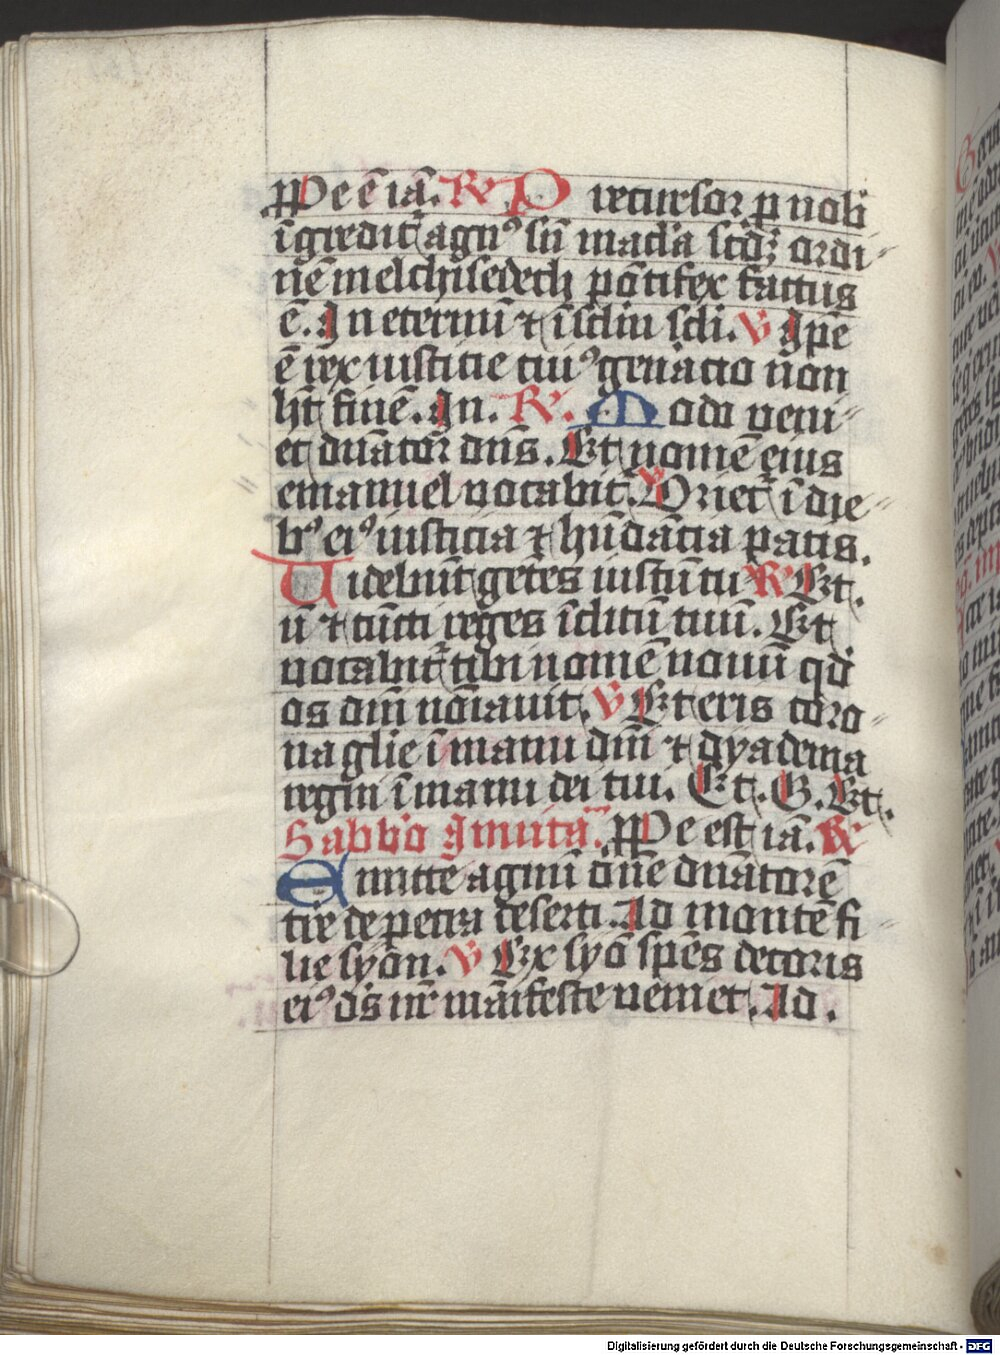 Ppe ē iā. R̄ Precursor ꝓ nob̄
īgredit᷑ agnꝰ sn̄ mac̄la scd̄ꝫ ordi
nē melchisedech pōtifex factus
ē. In eternū ⁊ ī sc̄lm sc̄li. V Ip̄e
ē rex iusticie cuiꝰ gen̄acio non
hȝ finē. In. R̄. Modo veni
et dn̄ator dn̄s. Et nomē eius
emanuel vocabit᷑. V Oriet᷑ ī die
bꝰ eiꝰ iusticia ⁊ hn̄dācia pacis.
Videbūt gētes iustū tuū R̄ Et.
ū ⁊ cūcti reges īclitū tuū. Et
vocabit᷑ tibi nomē nouū qd̄
os dn̄i nōiauit. V Et eris coro
na gl̄ie ī manu dn̄i ⁊ dyadema
regni ī manu dei tui. Et. G. Et.
Sabb̄o Inuitā. Ppe est iā. R̄
Emitte agnū dn̄e dn̄atorē
tr̄e de petra deserti. Ad montē fi
lie syon. V Ex syō spēs decoris
eiꝰ ds̄ nr̄ māifeste veniet. Ad.
Digitalisierung gefördert durch die Deutsche Forschungsgemeinschaft - DFG